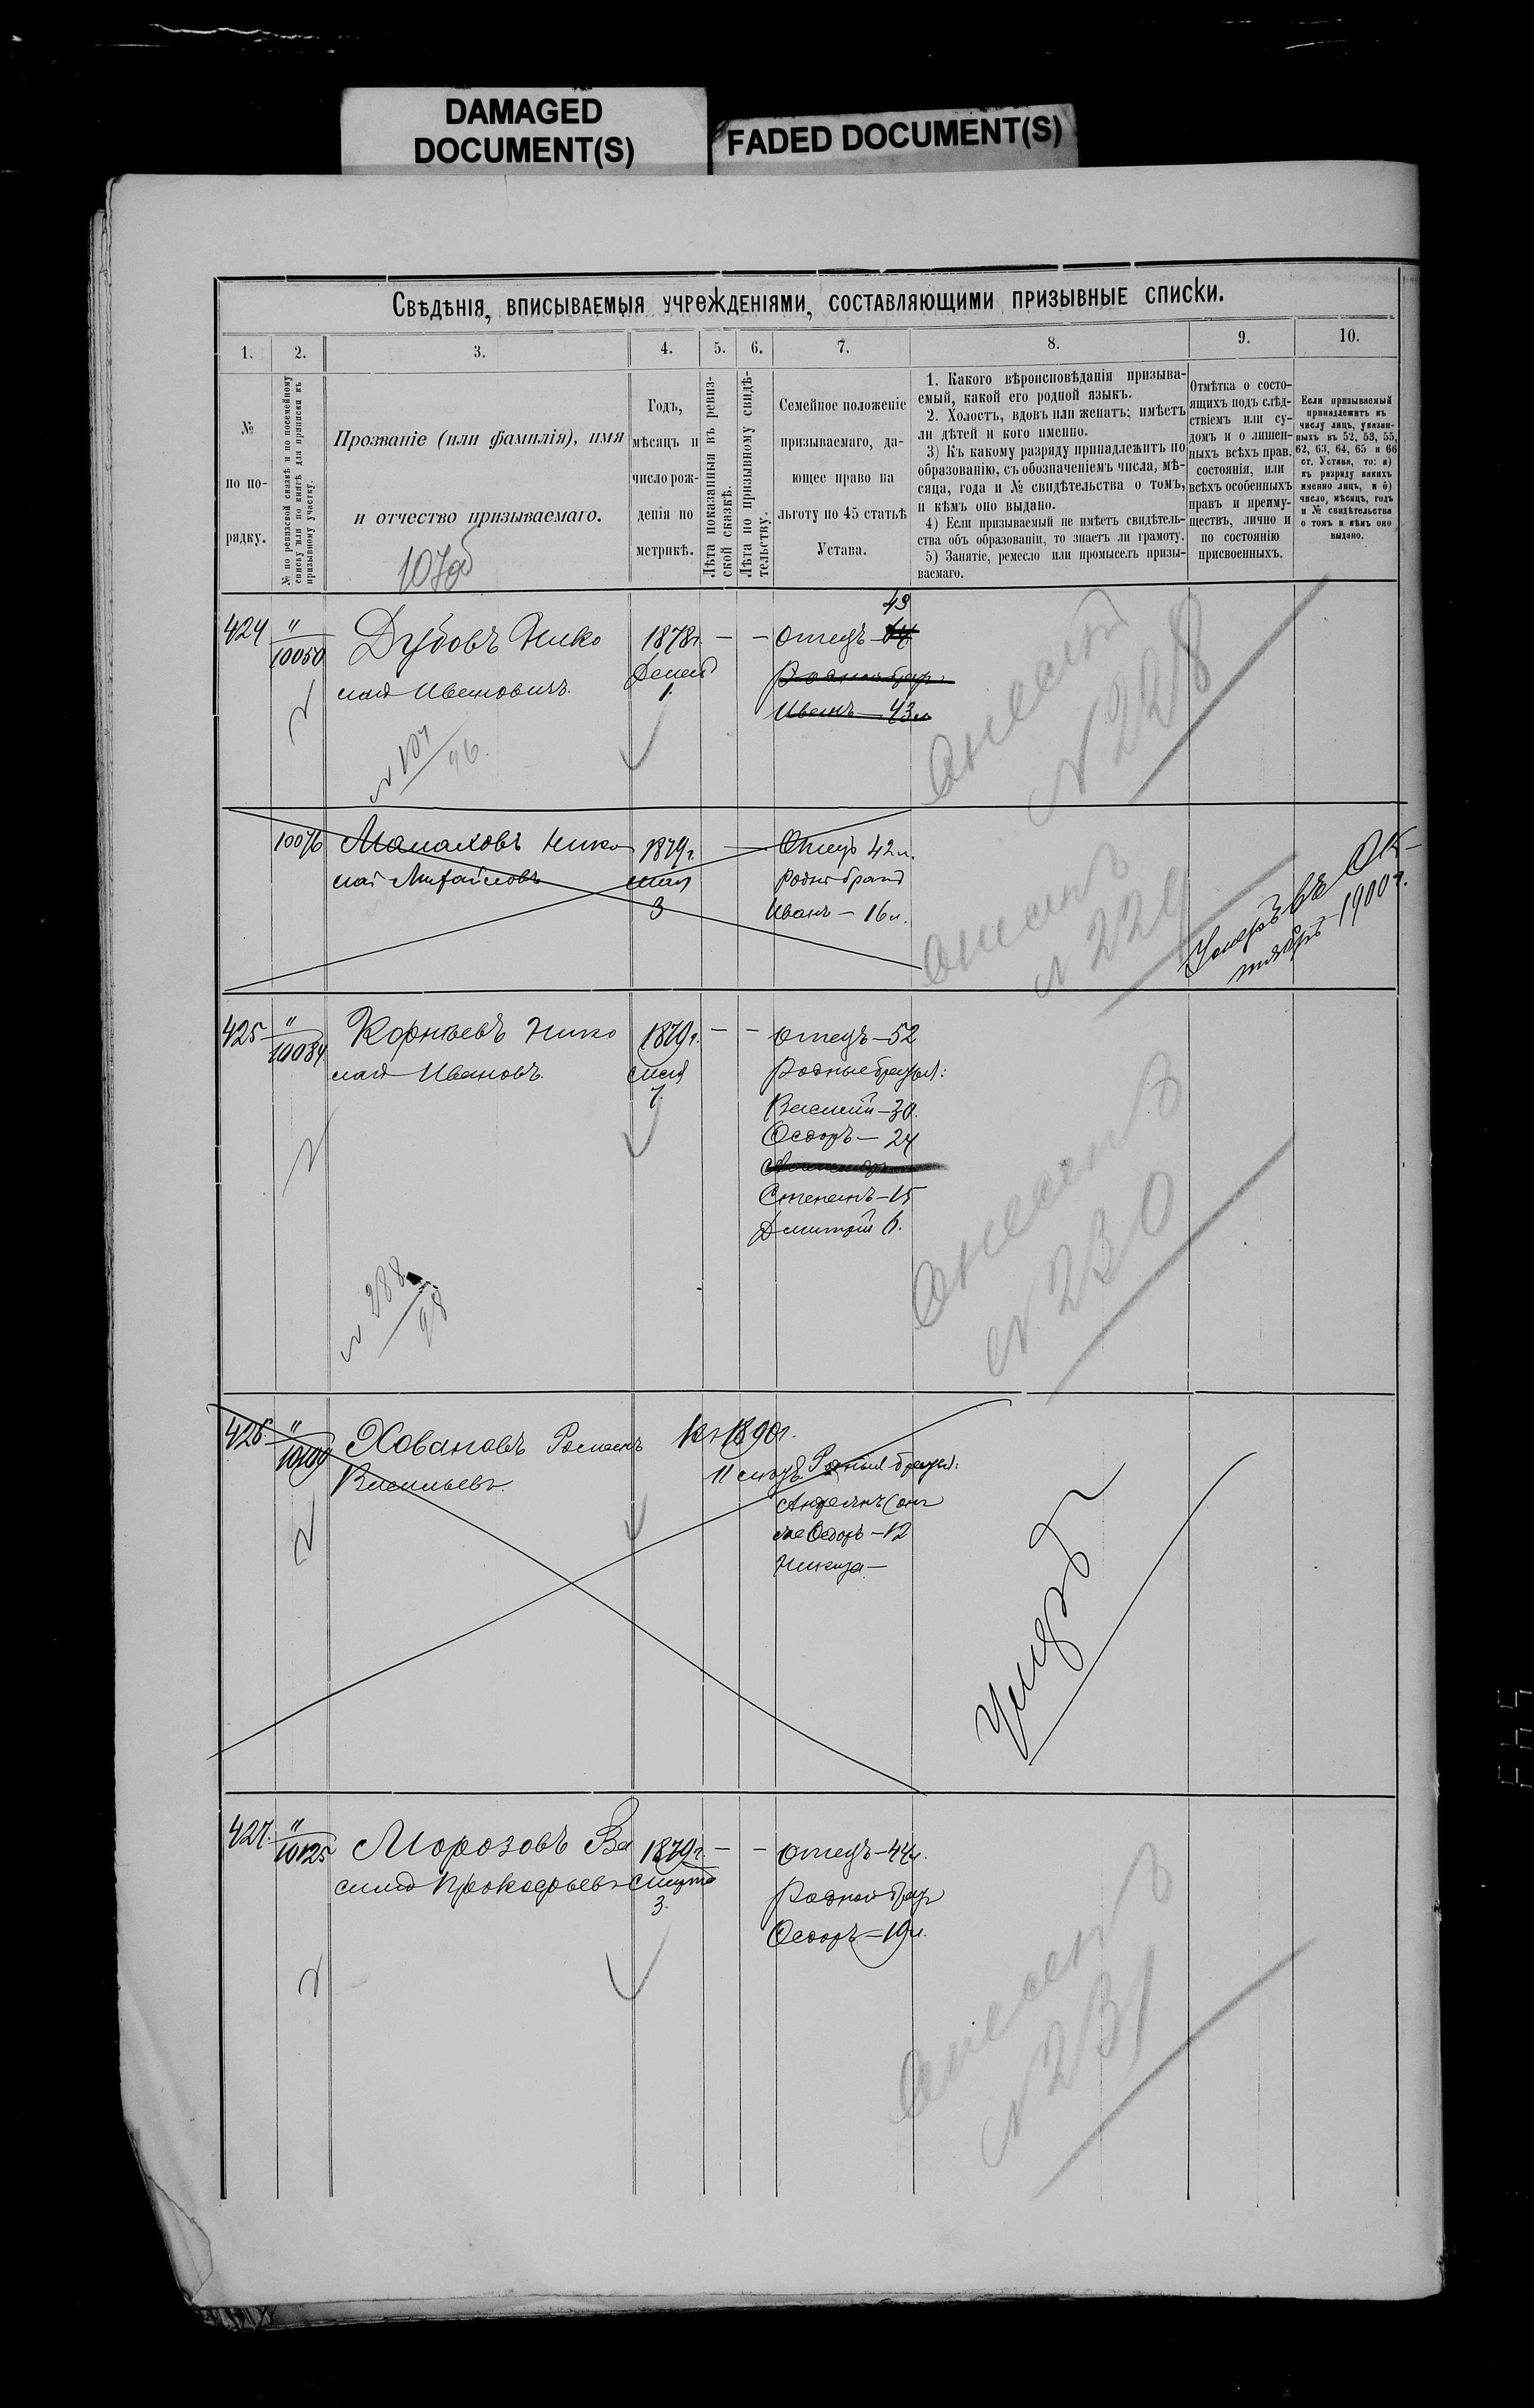 DAMAGED
DOCUMENT(S)
FADED DOCUMENT(S)
Свѣдѣнія, вписываемыя учрежденіями, составляющими призывные списки.
1.
2.
3.
4.
5.
6.
7.
8.
9.
10.
№
по по-
рядку.
№ по ревизской сказкѣ и по посемейному
списку или по книгѣ для приписки къ
призывному участку.
Прозваніе (или фамилія), имя
и отчество призываемаго.
Годъ,
мѣсяцъ и
число рож-
денія по
метрикѣ.
Лѣта показанныя въ ревиз-
ской сказкѣ.
Лѣта по призывному свидѣ-
тельству.
Семейное положеніе
призываемаго, да-
ющее право на
льготу по 45 статьѣ
Устава.
1. Какого вѣроисповѣданія призыва-
емый, какой его родной языкъ.
2. Холостъ, вдовъ или женатъ; имѣетъ
ли дѣтей и кого именно.
3) Къ какому разряду принадлежитъ по
образованію, съ обозначеніемъ числа, мѣ-
сяца, года и № свидѣтельства о томъ,
и кѣмъ оно выдано.
4) Если призываемый не имѣетъ свидѣтель-
ства объ образованіи, то знаетъ ли грамоту.
5) Занятіе, ремесло или промыселъ призы-
ваемаго.
Отмѣтка о состо-
ящихъ подъ слѣд-
ствіемъ или су-
домъ и о лишен-
ныхъ всѣхъ прав.
состоянія, или
всѣхъ особенныхъ
правъ и преиму-
ществъ, лично и
по состоянію
присвоенныхъ.
Если призываемый
принадлежитъ къ
числу лицъ, указан-
ныхъ въ 52, 53, 55,
62, 63, 64, 65 и 66
ст. Устава, то: а)
къ разряду какихъ
именно лицъ, и б)
число, мѣсяцъ, годъ
и № свидѣтельства
о томъ и кѣмъ оно
выдано.
424
"
10050
Дубовъ Нико
лай Ивановичъ.
1878г.
Декаб
1.
— —
43
Отецъ —
Родной братъ
Иванъ — 43л
№ 107
96.
№ 228
10076
Малаховъ Нико
лай Михайловъ
1879г.
мая
3
Отецъ 42л.
Родной братъ
Иванъ — 16л.
№ 229
Умеръ въ Ок-
тябрѣ 1900г.
425
"
10084
Корнѣевъ Нико
лай Ивановъ.
1879г.
мая
7.
— —
Отецъ — 52
Родные братья:
Василій — 30.
Ѳедоръ — 24
Степанъ — 15
Дмитрій 6.
№ 288
98
№ 230
426
"
10100
Ховановъ Романъ
Васильевъ.
Родные братья:
Ѳедоръ — 12
Никита —
Умеръ
427.
"
10125
Морозовъ Ва
силій Прокофьевъ
1879г.
марта
3.
— —
Отецъ — 44л.
Родной братъ
Ѳедоръ — 19л.
№ 231